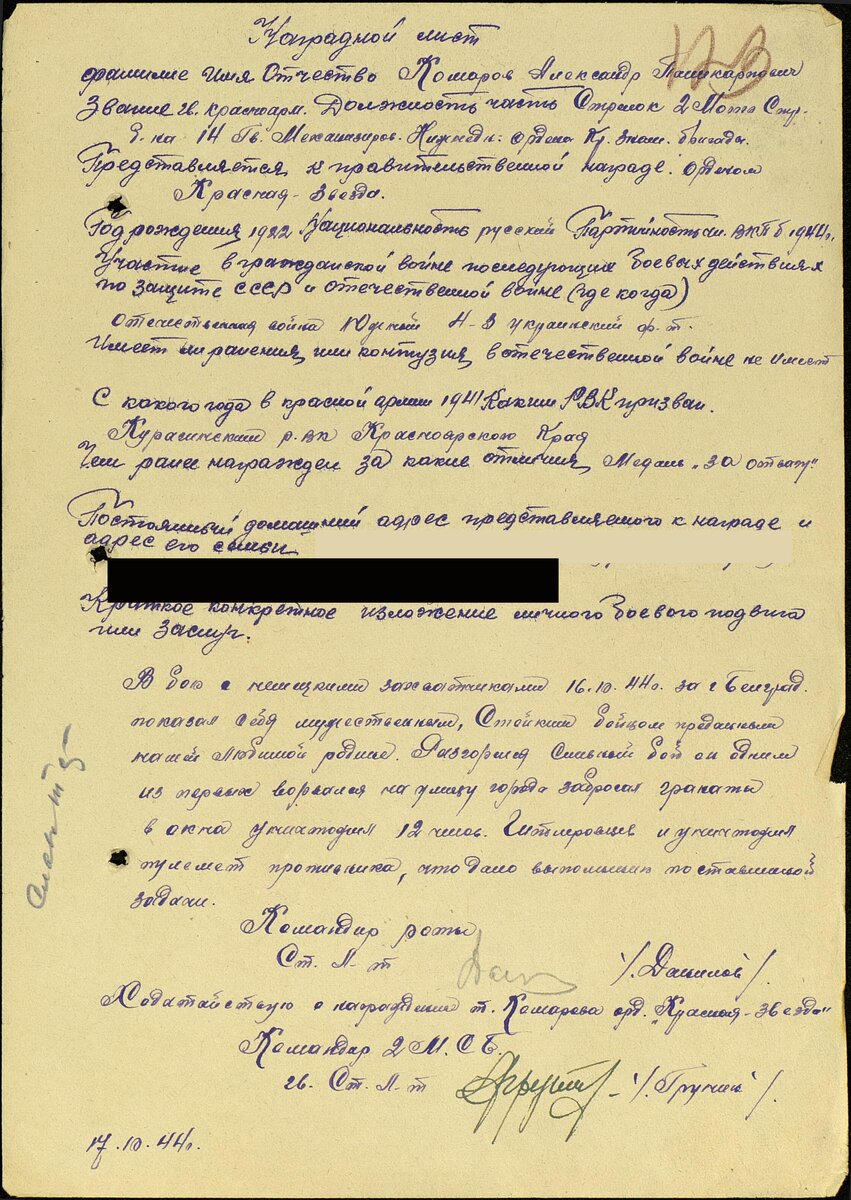 Наградной лист
фамилие Имя Отчество Комаров Александр
Звание гв. красноарм. Должность часть Стрелок 2 Мото Стр.
Б-на 14 Гв. Механизиров. Нижнедн. ордена Кр. Знам. бригады.
Представляется к правительственной награде: орденом
Красная-Звезда.
Год рождения 1922 Национальность русский Партийность чл. ВКПб 1944г.
Участие в гражданской войне последующих боевых действиях
по защите СССР и отечественной войне (где когда)
Отечественная война Южный 4-3 украинский ф-т.
Имеет ли ранения, или контузия, в отечественной войне не имеет
С какого года в красной армии 1941 Каким РВК призван.
р.вк Красноярского Края
Чем ранее награжден за какие отличия, Медаль "За отвагу"
Постоянный домашний адрес представляемого к награде и
адрес его семьи
Краткое конкретное изложение личного боевого подвига
или заслуг.
В бою с немецкими захватчиками 16.10.44г. за г Белград.
показал себя мужественным, Стойким бойцом преданным
нашей Любимой родине. Разгорелся Сильный бой он одним
из первых ворвался на улицу города забросал гранаты
в окна уничтожил 12 чełов. Гитлеровцев и уничтожил
пулемет противника, что дало выполнить поставленной
задачи.
Командир роты
Ст. Л-т /. Данилов /.
Ходатайствую о награждении т. Комарова орд. "Красная-Звезда"
Командир 2 М.С.Б.
гв. Ст. Л-т
17.10.44г.